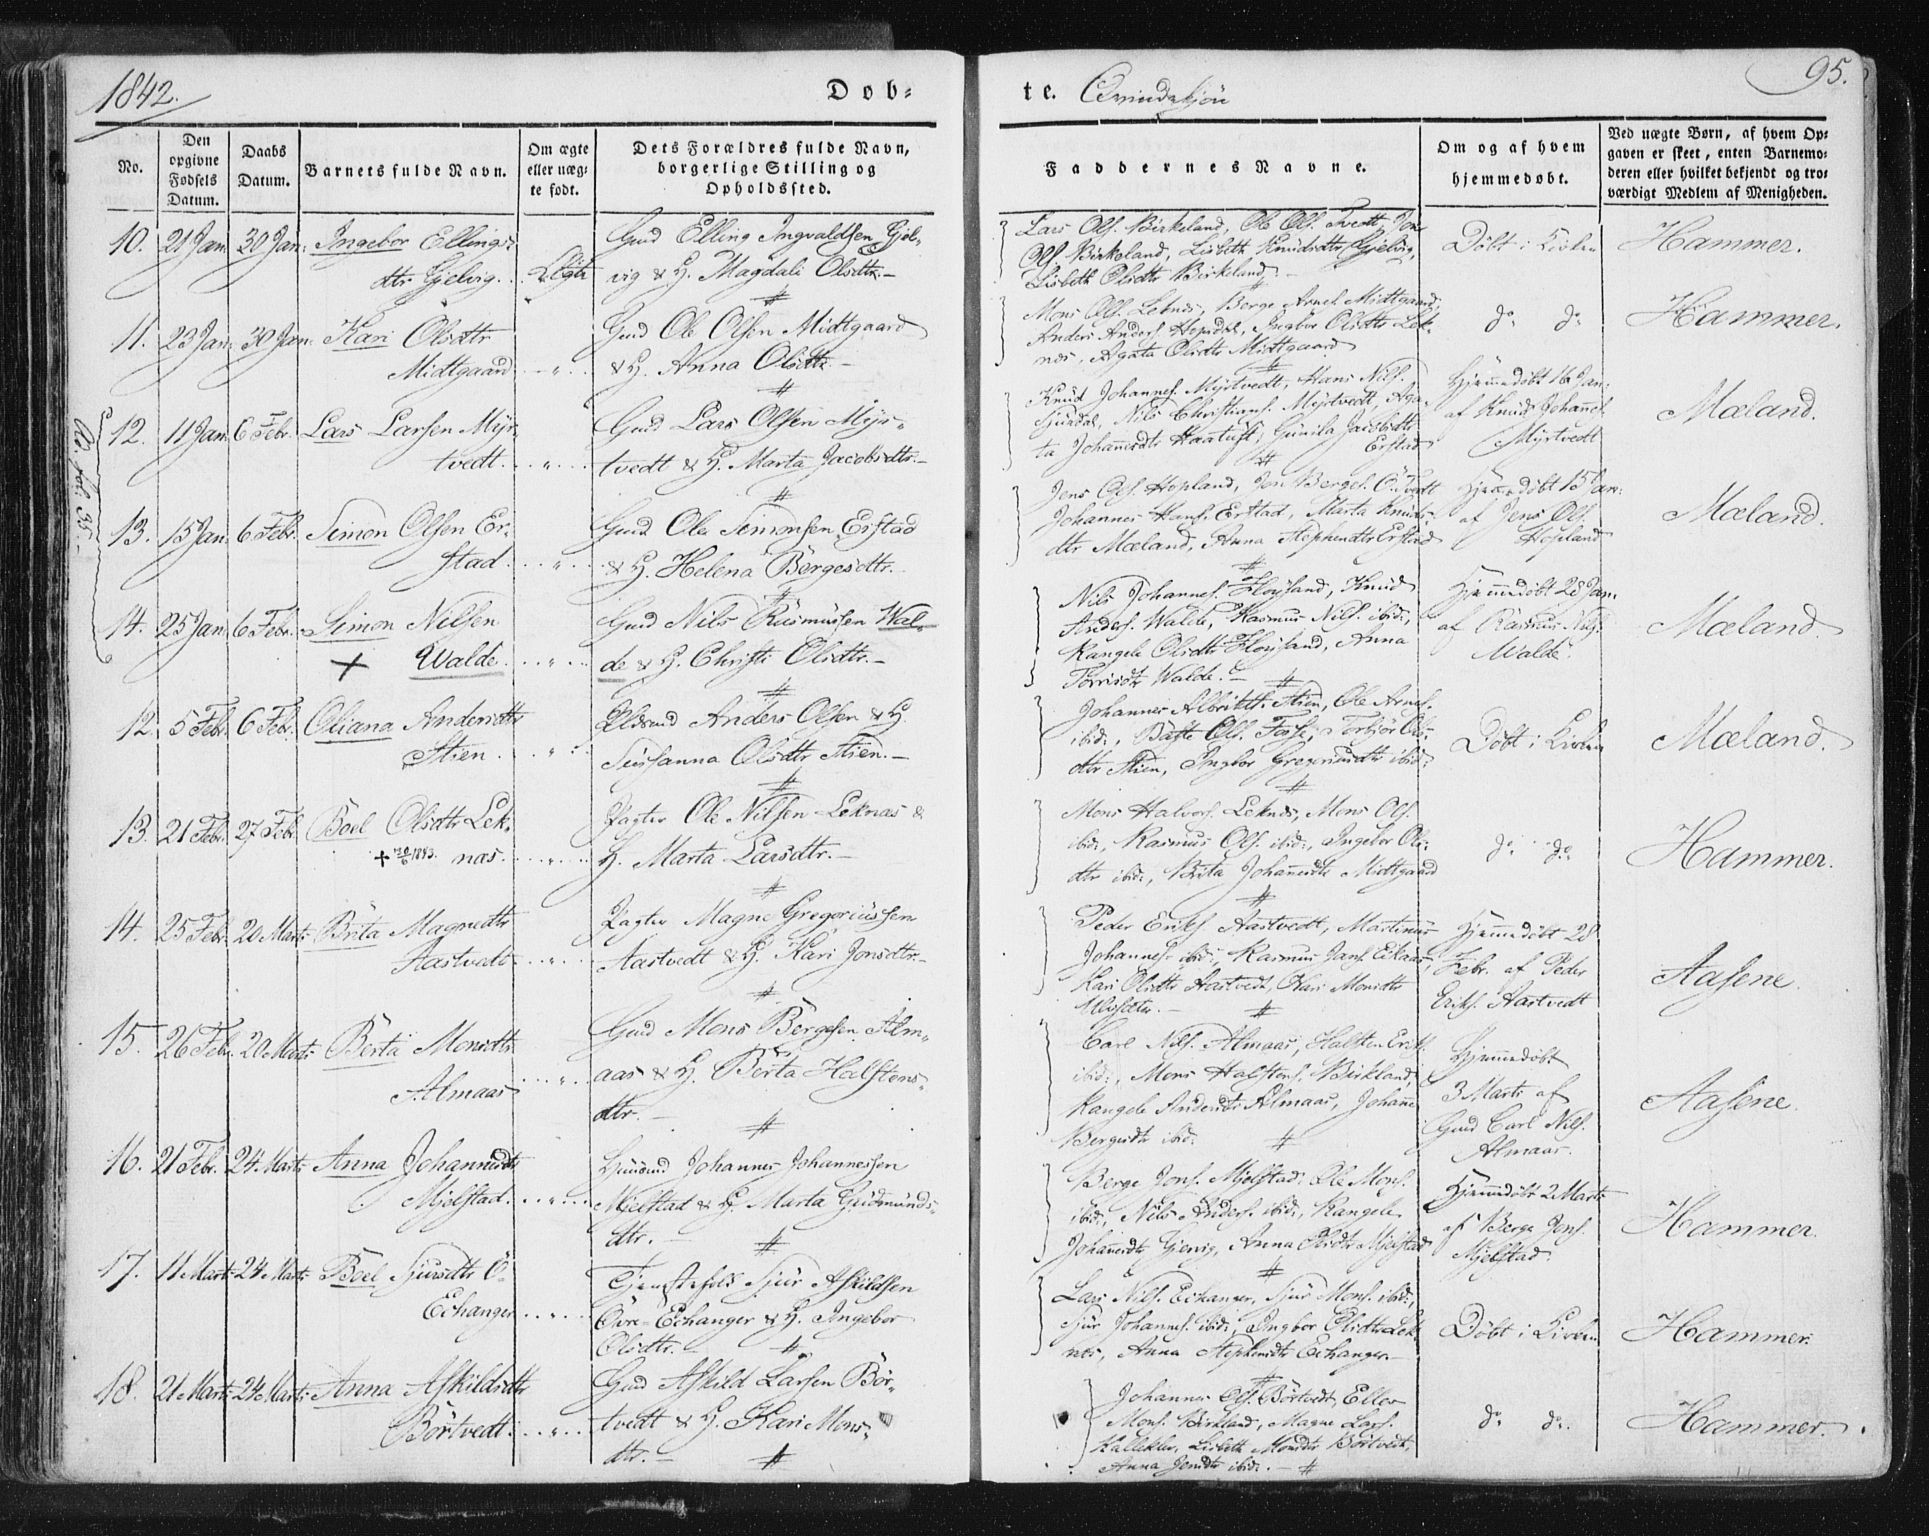 1842.
Døb-
te. Qvindekjøn
95.
No.
Den opgivne Fødsels Datum.
Daabs Datum.
Barnets fulde Navn.
Om ægte eller uægte født.
Dets Forældres fulde Navn, borgerlige Stilling og Opholdssted.
Faddernes Navne.
Om og af hvem hjemmedøbt.
Ved uægte Børn, af hvem Opgaven er skeet, enten Barnemoderen eller hvilket bekjendt og troværdigt Medlem af Menigheden.
10. 21 Jan. 30 Jan. Ingebor Ellings-
dtr Gjelvig. Ægte
Gmd Elling Ingvaldsen Gjel-
vig & H. Magdali Olsdtr.-
Lars Ols. Birkeland, Ole Ols. Tvedt, Jon
Ols. Birkeland, Lisbeth Knudsdtr Gjelvig,
Lisbeth Olsdtr Birkeland.
Døbt i Kirken
Hammer.
11. 23 Jan. 30 Jan. Kari Olsdtr
Midtgaard - " -
Gmd Ole Olsen Midtgaard
& H. Anna Olsdtr.-
Mons Ols. Leknes, Berge Arnes. Midtgaard,
Anders Anders. Hopsdal, Ingbor Olsdtr Lek-
nes, Agata Olsdtr Midtgaard
do do
Hammer.
Cf. fol. 35.
12. 11 Jan. 6 Febr. Lars Larsen Myr-
tvedt. "
Gmd Lars Olsen Myr-
tvedt & H. Marta Jacobsdtr.-
Knud Johannes. Myrtvedt, Hans Nils.
Nils Christians. Myrtvedt, Aga-
ta Johannesdtr Gunila Jacobsdtr
Erstad
Hjemmedøbt 16 Jan.
af Knud Johannes.
Myrtvedt
Mæland.
13. 15 Jan. 6 Febr. Simon Olsen Er-
stad. "
Gmd Ole Simonsen Erstad
& H. Helena Børgesdtr.
Jens Ols. Hopland, Jon Berges.
Johannes Hans. Erstad, Marta Knuds-
dtr Mæland, Anna Stephensdtr Erstad
Hjemmedøbt 15 Jan.
af Jens Ols.
Hopland
Mæland.
14. 25 Jan. 6 Febr. Simon Nilsen
+ Walde. "
Gmd Nils Rasmussen Wal-
de & H. Christi Olsdtr.-
Nils Johannes. Fløysand, Knud
Anders. Walde, Rasmus Nils. ibid.,
Rangele Olsdtr Fløysand, Anna
Walde.
Hjemmedøbt 28 Jan.
af Rasmus Nils.
Walde.
Mæland.
12. 5 Febr. 6 Febr. Oliana Andersdtr
Stien. "
Anders Olsen & H.
Sussanna Olsdtr Stien.-
Johannes Albrikts. Stien, Ole Arnes.
ibid., Baste Ols. Fosse, Torbjør Ols-
dtr Stien, Ingbor Gregoriusdtr ibid.
Døbt i Kirken
Mæland.
13. 21 Febr. 27 Febr. Boel Olsdtr Lek-
+ 1843. nes. "
Pagter Ole Nilsen Leknes &
H. Marta Larsdtr.-
Mons Halvors. Leknes, Mons Ols.
ibid., Rasmus Ols. ibid., Ingebor Ols-
dtr ibid., Brita Johannesdtr Midtgaard
do do
Hammer.
14. 25 Febr. 20 Marts Brita Magnedtr
Aastvedt. "
Pagter Magne Gregoriussen
Aastvedt & H. Kari Jonsdtr.-
Peder Eriks. Aastvedt, Martinus
Johannes. ibid., Rasmus Jans. Eikaas,
Kari Olsdtr Aastvedt, Kari Monsdtr
Hjemmedøbt 28
Febr. af Peder
Eriks. Aastvedt
Aasene.
15. 26 Febr. 20 Marts Berta Monsdtr
Almaas "
Gmd Mons Bergesen Alm-
aas & H. Berta Halstens-
dtr.-
Carl Nils. Almaas, Halsten Eriks.
ibid., Mons Halstens. Birkland,
Rangele Andersdtr Almaas, Johanne
Bergesdtr ibid.
Hjemmedøbt
3 Marts af
Gmd Carl Nils.
Almaas.
Aasene.
16. 21 Febr. 24 Marts Anna Johannesdtr
Mjelstad. "
Huusmd Johannes Johannessen
Mjelstad & H. Marta Gudmunds-
dtr.-
Berge Jons. Mjelstad, Ole Mons.
ibid., Nils Anders. ibid., Rangele
Johannesdtr Gjervig, Anna Olsdtr Mjelstad
Hjemmedøbt 2 Marts
af Berge Jons.
Mjelstad.
Hammer.
17. 11 Marts 24 Marts Boel Sjursdtr Ø-
Echanger "
Tjenestefolk Sjur Askildsen
Øvre-Echanger & H. Ingebor
Olsdtr.
Lars Nils. Echanger, Sjur Mons. ibid.,
Sjur Johannes. ibid., Ingbor Olsdtr Lek-
nes, Anna Stephensdtr Echanger.
Døbt i Kirken
Hammer.
18. 21 Marts 24 Marts Anna Askildsdtr
Børtvedt. "
Gmd Askild Larsen Bør-
tvedt & H. Kari Mons-
dtr.-
Johannes Ols. Børtvedt, Eller
Mons. Birkland, Magne Lars.
Kalleklev, Lisbeth Monsdtr Børtvedt,
Anna Jensdtr ibid.-
do do.
Hammer.